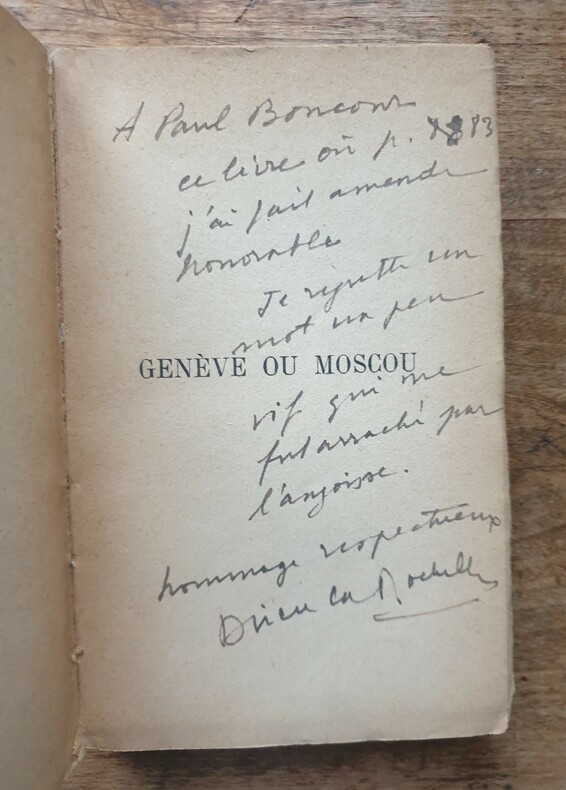 A Paul Boncour
ce livre où p. 13
j'ai fait amende
honorable
Je regrette un
mot un peu
GENÈVE OU MOSCOU
vif qui me
fut arraché par
l'angoisse.
hommage respectueux
Drieu la Rochelle